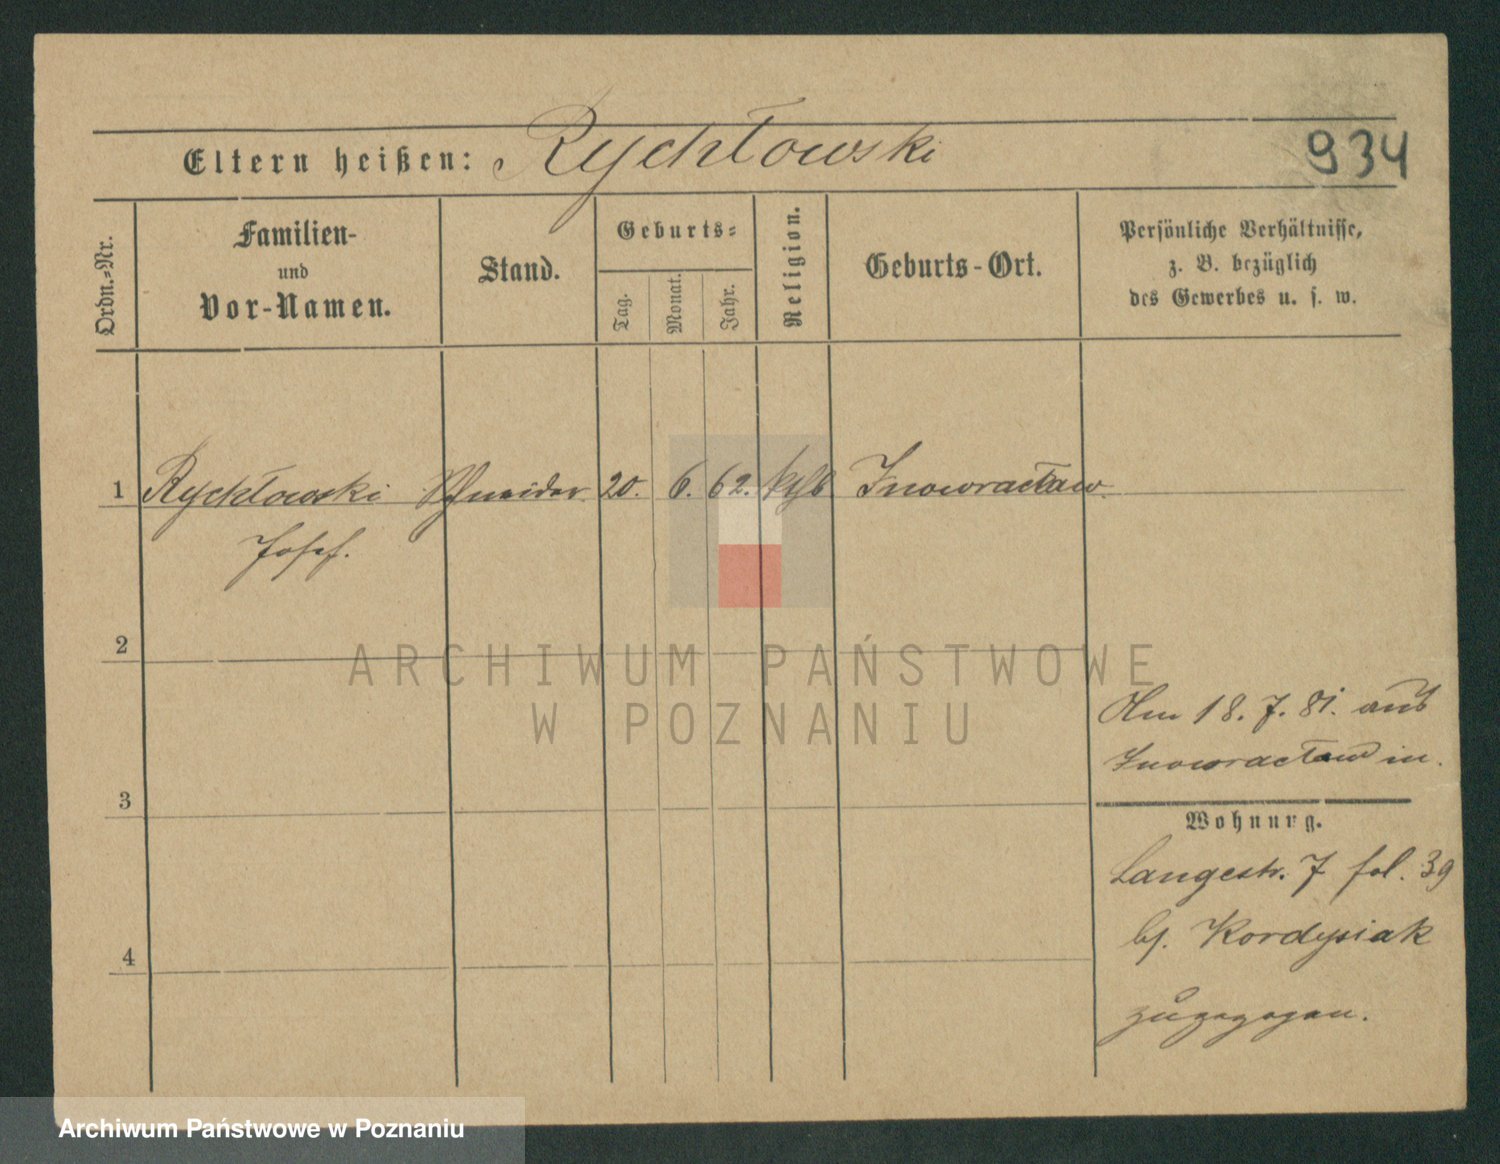 Eltern heißen: Rychłowski
934
Ordn.-Nr.
Familien-
und
Vor-Namen.
Stand.
Geburts-
Tag.
Monat.
Jahr.
Religion.
Geburts-Ort.
Persönliche Verhältnisse,
z. B. bezüglich
des Gewerbes u. s. w.
1 Rychłowski Schneider 20. 6. 62. kth Inowracław
Josef.
2
ARCHIWUM PAŃSTWOWE
W POZNANIU
Am 18. 7. 81. aus
Inowracław in.
3
Wohnung.
Langestr. 7 fol. 39
bj. Kordysiak
4
zugezogen.
Archiwum Państwowe w Poznaniu